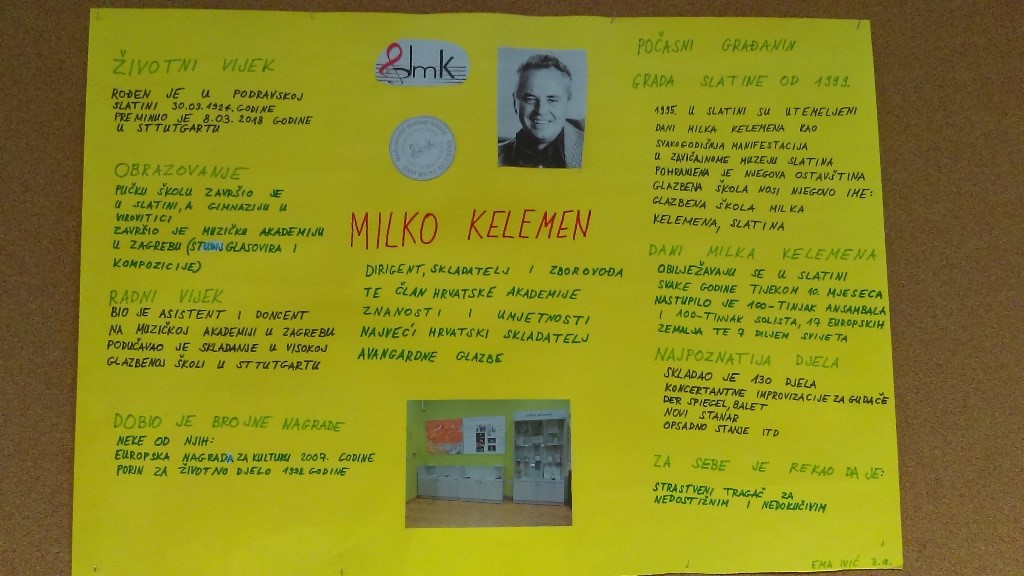 ŽIVOTNI VIJEK
ROĐEN JE U PODRAVSKOJ
SLATINI 30.03.1924. GODINE
PREMINUO JE 8.03. 2018 GODINE
U STTUTGARTU
OBRAZOVANJE
PUČKU ŠKOLU ZAVRŠIO JE
U SLATINI, A GIMNAZIJU U
VIROVITICI
ZAVRŠIO JE MUZIČKU AKADEMIJU
U ZAGREBU (STUDIJ GLASOVIRA I
KOMPOZICIJE)
RADNI VIJEK
BIO JE ASISTENT I DOCENT
NA MUZIČKOJ AKADEMIJI U ZAGREBU
PODUČAVAO JE SKLADANJE U VISOKOJ
GLAZBENOJ ŠKOLI U STTUTGARTU
DOBIO JE BROJNE NAGRADE
NEKE OD NJIH:
EUROPSKA NAGRADA ZA KULTURU 2007. GODINE
PORIN ZA ŽIVOTNO DJELO 1998. GODINE
dmk
MILKO KELEMEN
DIRIGENT, SKLADATELJ I ZBOROVOĐA
TE ČLAN HRVATSKE AKADEMIJE
ZNANOSTI I UMJETNOSTI
NAJVEĆI HRVATSKI SKLADATELJ
AVANGARDNE GLAZBE
POČASNI GRAĐANIN
GRADA SLATINE OD 1993.
1995. U SLATINI SU UTEMELJENI
DANI MILKA KELEMENA KAO
SVAKOGODIŠNJA MANIFESTACIJA
U ZAVIČAJNOME MUZEJU SLATINA
POHRANJENA JE NJEGOVA OSTAVŠTINA
GLAZBENA ŠKOLA NOSI NJEGOVO IME:
GLAZBENA ŠKOLA MILKA
KELEMENA, SLATINA
DANI MILKA KELEMENA
OBILJEŽAVAJU SE U SLATINI
SVAKE GODINE TIJEKOM 10. MJESECA
NASTUPILO JE 100-TINJAK ANSAMBALA
I 100-TINJAK SOLISTA, 17 EUROPSKIH
ZEMALJA TE 7 DILJEM SVIJETA
NAJPOZNATIJA DJELA
SKLADAO JE 130 DJELA
KONCERTANTNE IMPROVIZACIJE ZA GUDAČE
DER SPIEGEL, BALET
NOVI STANAR
OPSADNO STANJE ITD
ZA SEBE JE REKAO DA JE:
STRASTVENI TRAGAČ ZA
NEDOSTIŽNIM I NEDOKUČIVIM
EMA IVIĆ 3.a.